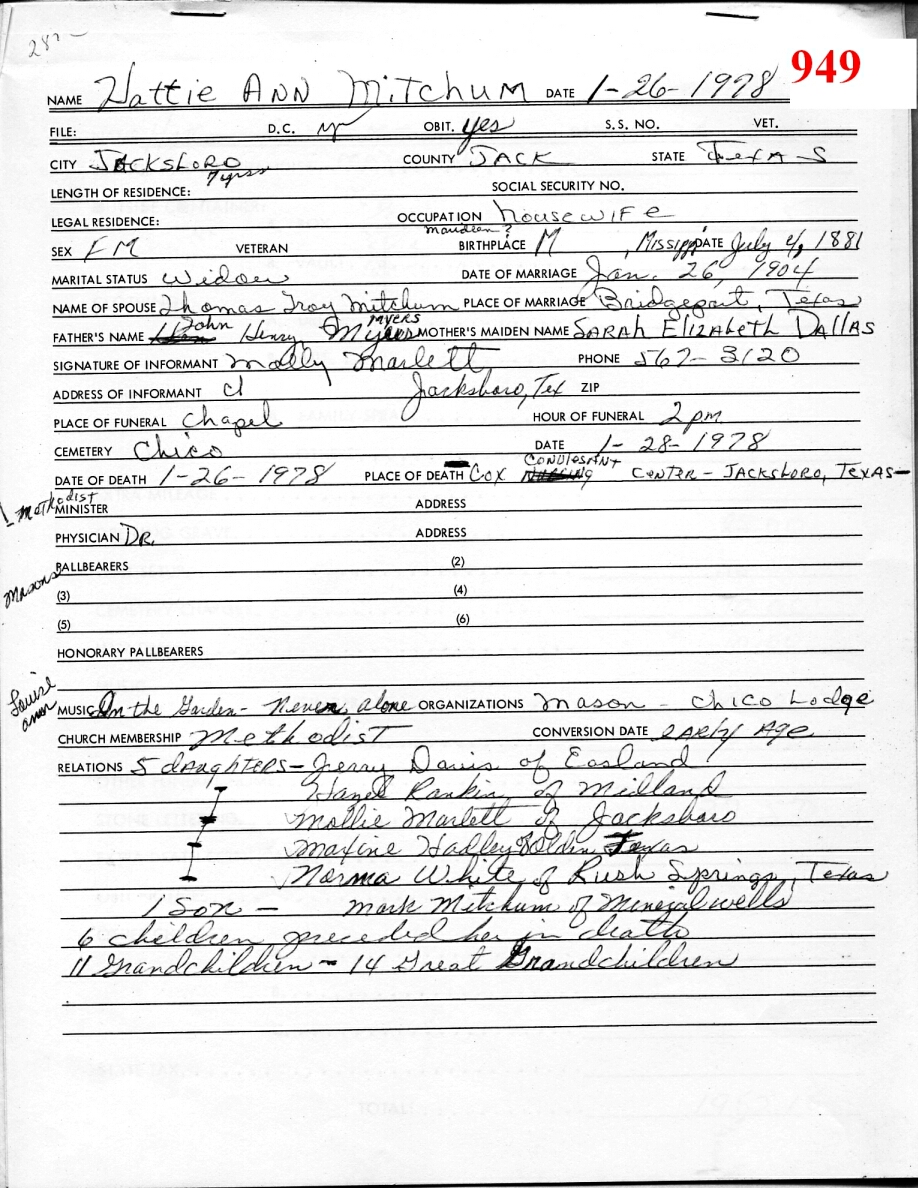 287-
949
NAME Hattie ANN MITCHUM DATE 1-26-1978
FILE: D.C. OBIT. yes S.S. NO. VET.
CITY JACKSBORO COUNTY JACK STATE TEXAS
LENGTH OF RESIDENCE: 7 yrs SOCIAL SECURITY NO.
LEGAL RESIDENCE: OCCUPATION housewIFe
SEX FM VETERAN BIRTHPLACE M Mississippi DATE July 4, 1881
MARITAL STATUS Widow DATE OF MARRIAGE Jan. 26, 1904
NAME OF SPOUSE Thomas Troy Mitchum PLACE OF MARRIAGE Bridgeport, Texas
FATHER'S NAME John Henry Myers MYERS MOTHER'S MAIDEN NAME SARAH ELIZABETH DALLAS
SIGNATURE OF INFORMANT Molly Marlett PHONE 567-3120
ADDRESS OF INFORMANT Jacksboro, Tex ZIP
PLACE OF FUNERAL Chapel HOUR OF FUNERAL 2 pm
CEMETERY Chico DATE 1-28-1978
DATE OF DEATH 1-26-1978 PLACE OF DEATH COX CONVLESANT CENTER - JACKSBORO, TEXAS-
Methodist
MINISTER ADDRESS
PHYSICIAN DR. ADDRESS
Masons
PALLBEARERS (2)
(3) (4)
(5) (6)
HONORARY PALLBEARERS
Louise
MUSIC In the Garden - Never Alone ORGANIZATIONS Mason - Chico Lodge
CHURCH MEMBERSHIP Methodist CONVERSION DATE EARLY Age
RELATIONS 5 daughters - Jerry Davis of Easland
Hazel Rankin of Midland
Mollie Marlett of Jacksboro
Maxine Hadley of Olden Texas
Norma White of Rush Springs, Texas
1 Son - Mark Mitchum of Mineral wells
6 children preceded her in death
11 Grandchildren - 14 Great Grandchildren